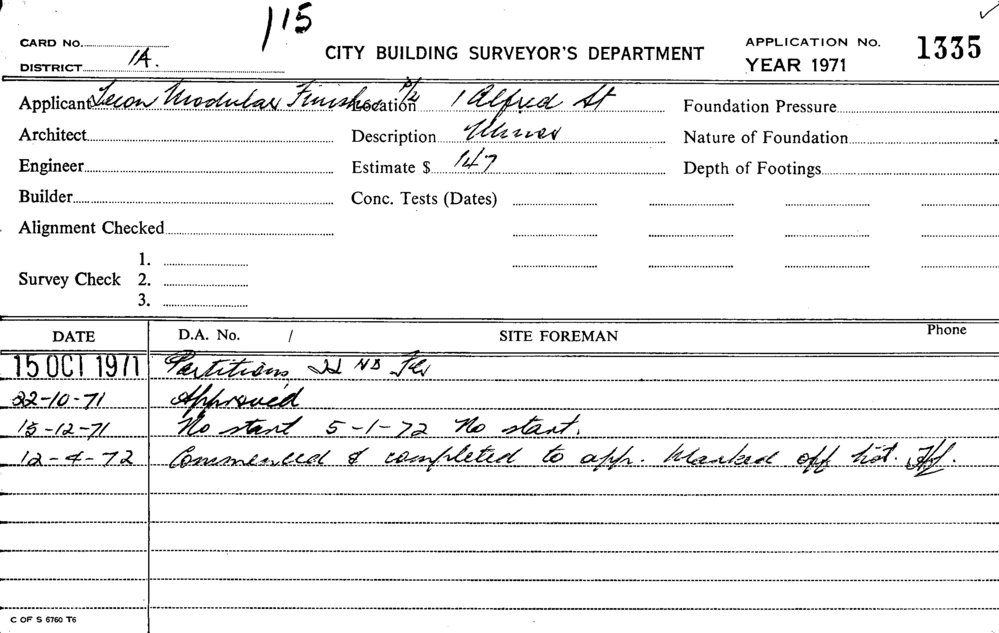 115
CARD No.
DISTRICT 1A.
CITY BUILDING SURVEYOR'S DEPARTMENT
APPLICATION No. 1335
YEAR 1971
Applicant Modular P/L
Location 1 Alfred St
Foundation Pressure
Architect
Description
Nature of Foundation
Engineer
Estimate $ 147
Depth of Footings
Builder
Conc. Tests (Dates)
Alignment Checked
Survey Check
1.
2.
3.
DATE D.A. No. / SITE FOREMAN Phone
15 OCT 1971 Partitions 22ND Flr
22-10-71 Approved
15-12-71 No start 5-1-72 No start.
12-4-72 Commenced & completed to app. Marked off list.
C OF S 6760 T6